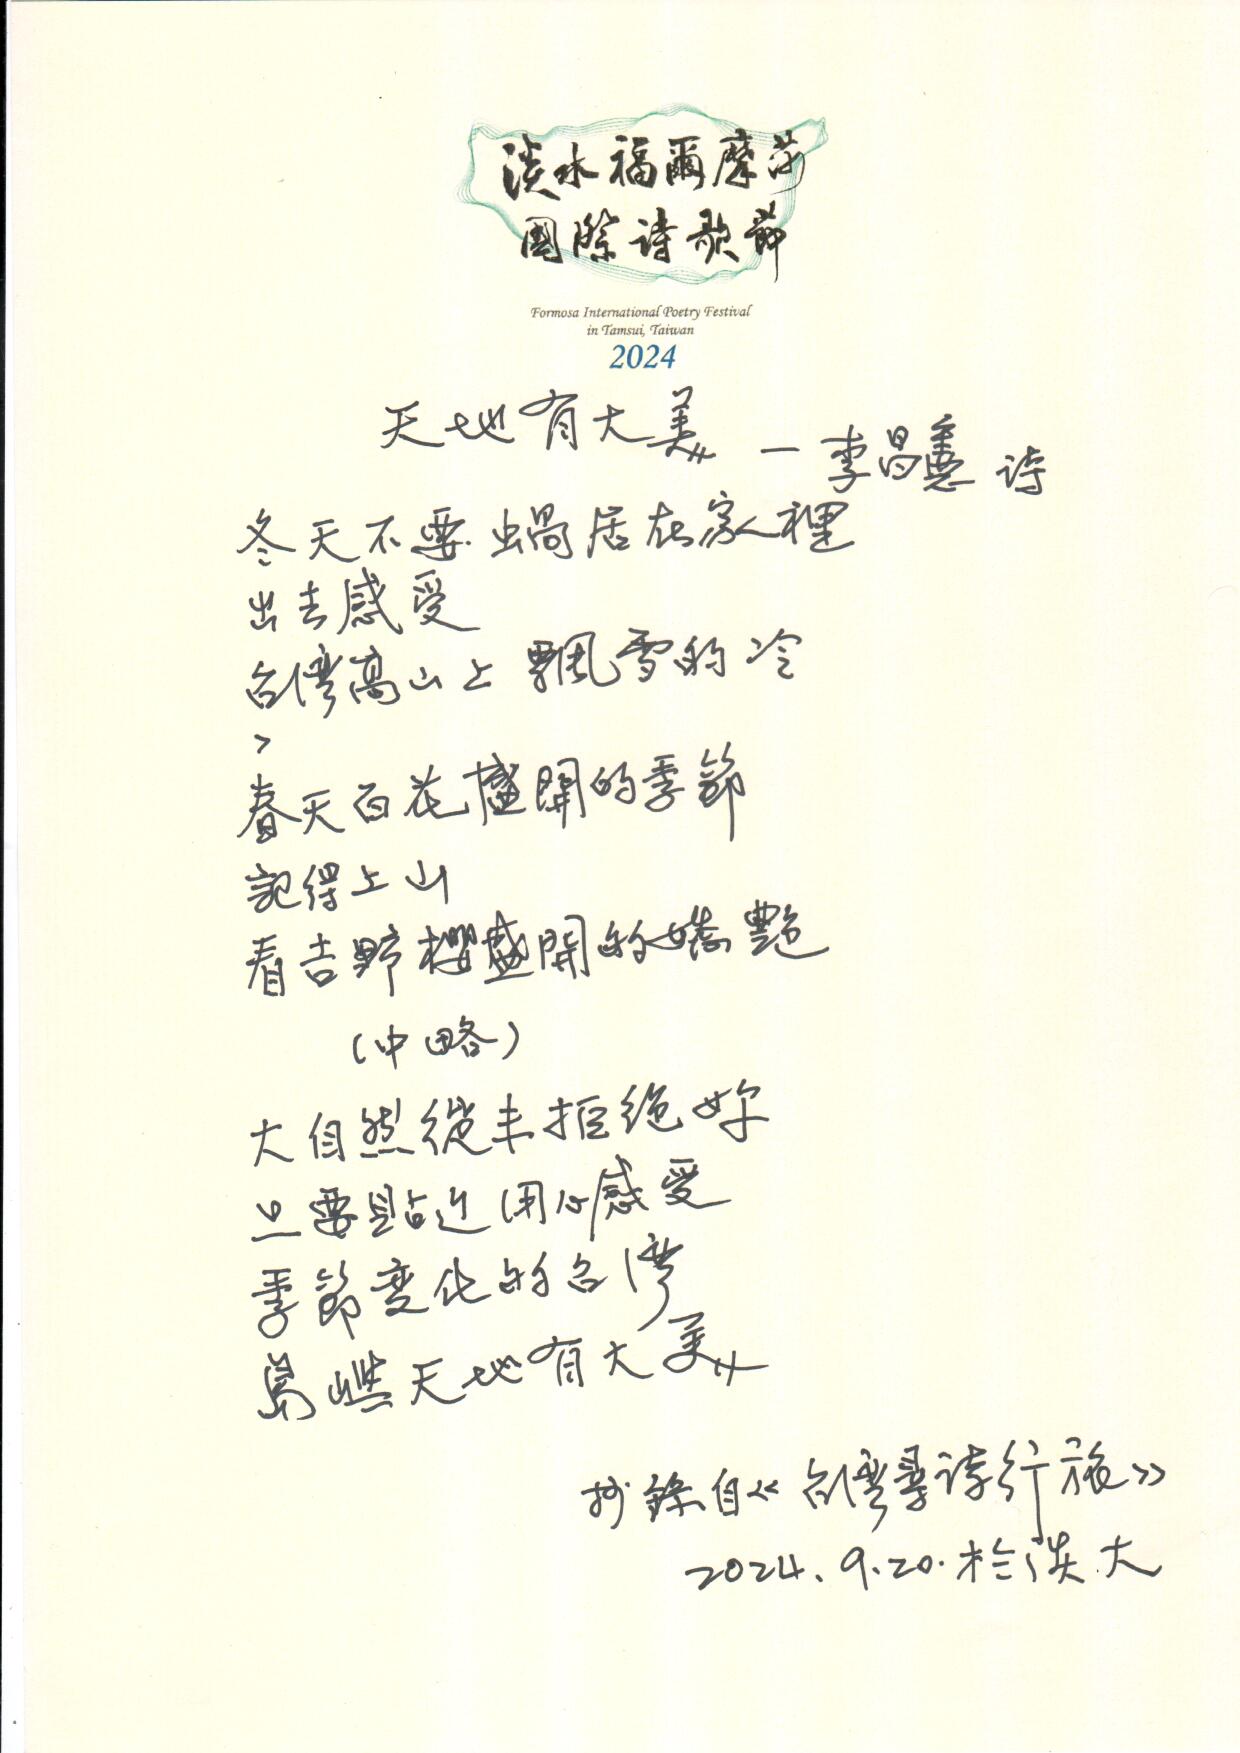 淡水福爾摩莎
國際詩歌節
Formosa International Poetry Festival
in Tamsui, Taiwan
2024
天地有大美
—李昌憲 詩
冬天不要蝸居在家裡
出去感受
台灣高山上飄雪的冷
>
春天百花盛開的季節
記得上山
看吉野櫻盛開的嬌艷
(中略)
大自然從未拒絕妳
只要貼近用心感受
季節變化的台灣
島嶼天地有大美
抄錄自《台灣尋詩行旅》
2024.9.20.於淡大